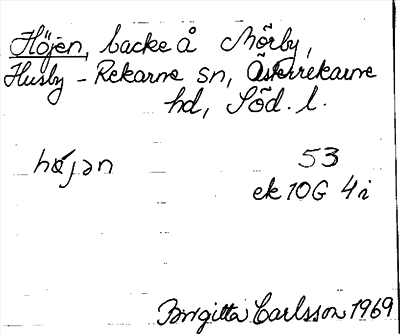 Höjen, backe å Mörby,
Husby-Rekarne sn, Österrekarne
hd, Söd. l.
højən 53
ek 10G 4i
Birgitta Carlsson 1969